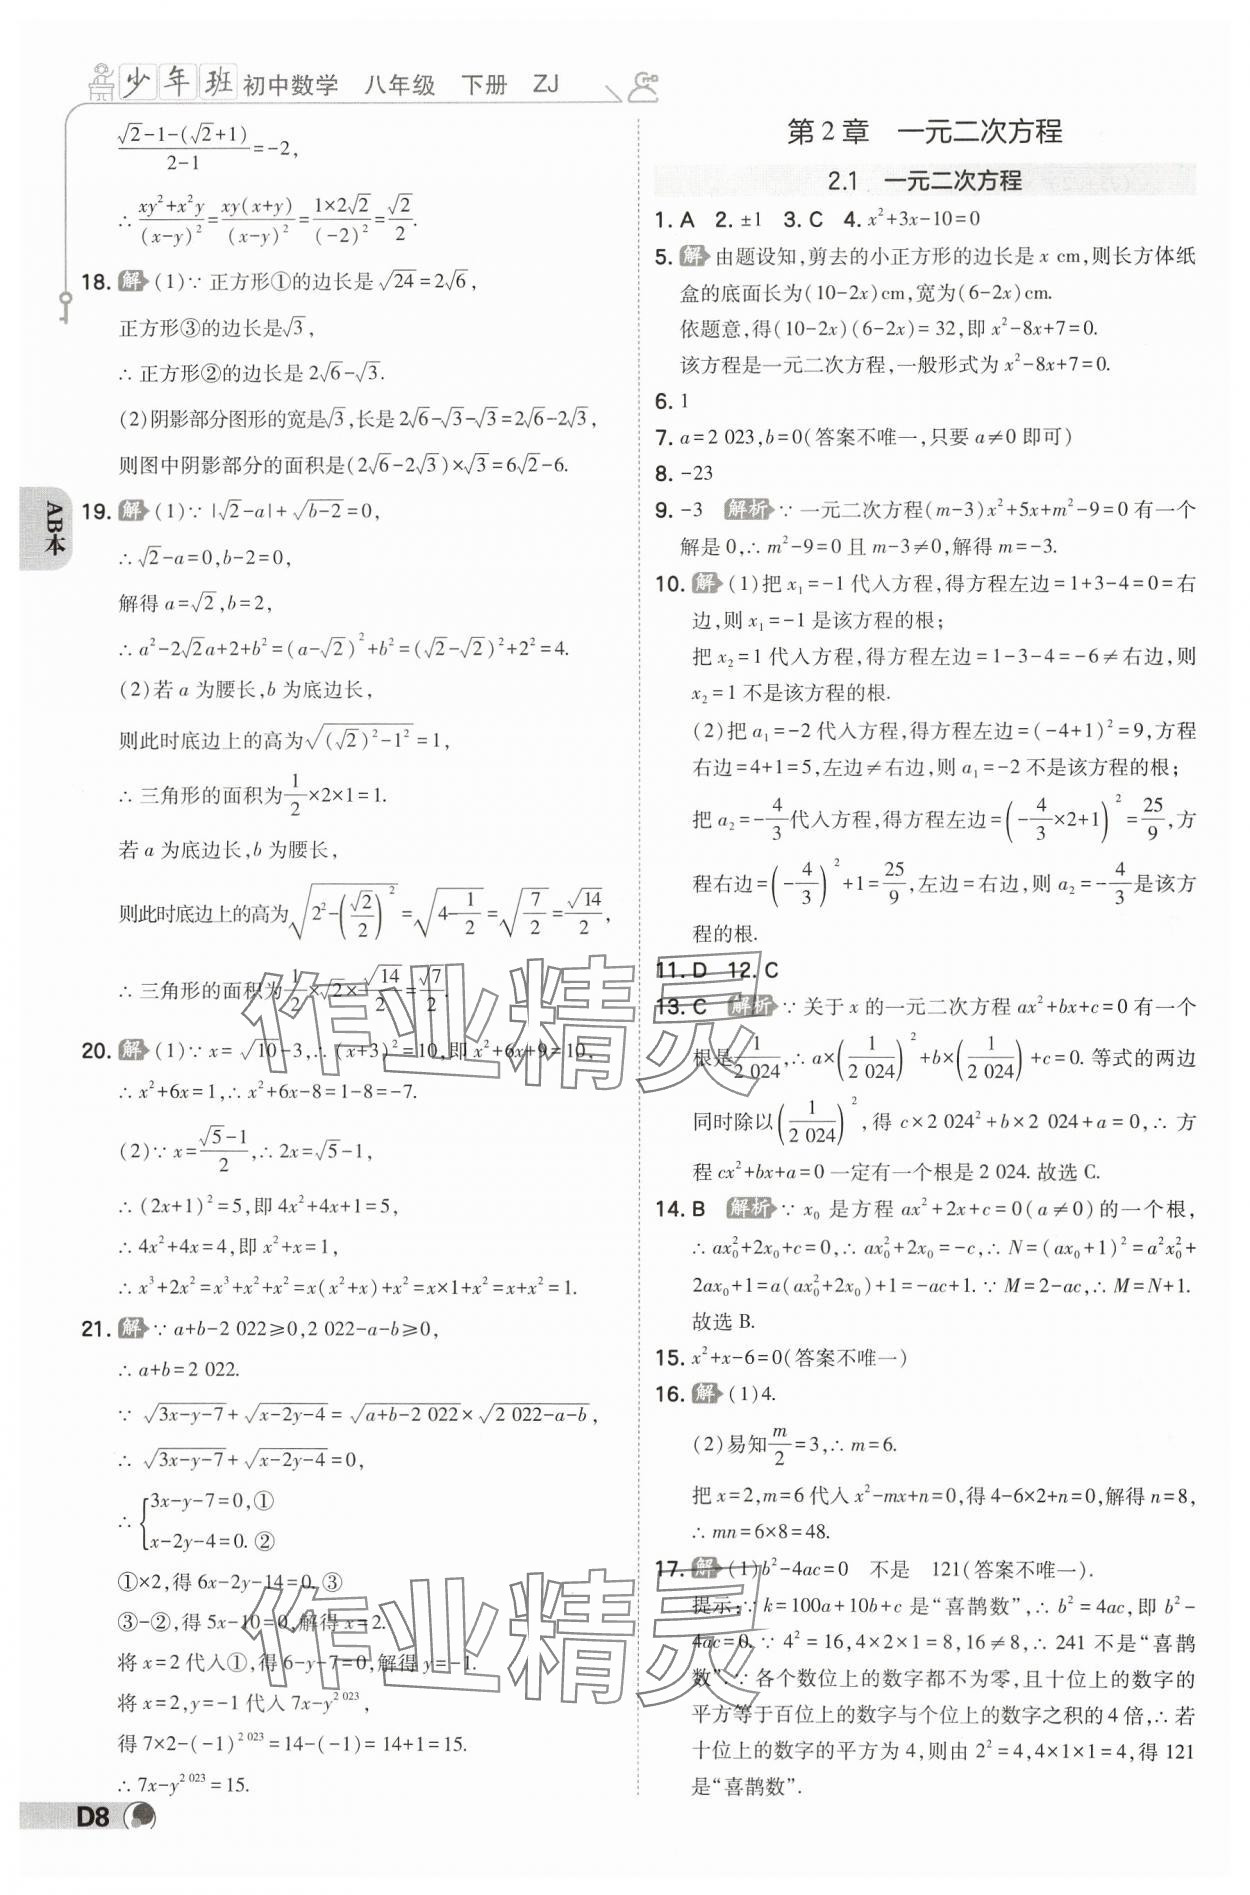 少年班 初中数学 八年级 下册 ZJ
(√2-1-(√2+1))/(2-1)=-2,
∴ (xy²+x²y)/(x-y)²=xy(x+y)/(x-y)²=(1×2√2)/(-2)²=√2/2.
18. 解 (1)∵ 正方形①的边长是√24=2√6,
正方形③的边长是√3,
∴ 正方形②的边长是2√6-√3.
(2)阴影部分图形的宽是√3,长是2√6-√3-√3=2√6-2√3,
则图中阴影部分的面积是(2√6-2√3)×√3=6√2-6.
19. 解 (1)∵ |√2-a|+√(b-2)=0,
∴ √2-a=0,b-2=0,
解得a=√2,b=2,
∴ a²-2√2a+2+b²=(a-√2)²+b²=(√2-√2)²+2²=4.
(2)若a为腰长,b为底边长,
则此时底边上的高为√((√2)²-1²)=1,
∴ 三角形的面积为1/2×2×1=1.
若a为底边长,b为腰长,
则此时底边上的高为√(2²-(√2/2)²)=√(4-1/2)=√(7/2)=√14/2,
∴ 三角形的面积为1/2×√2×√14/2=√7/2.
20. 解 (1)∵ x=√10-3,∴ (x+3)²=10,即x²+6x+9=10,
∴ x²+6x=1,∴ x²+6x-8=1-8=-7.
(2)∵ x=(√5-1)/2,∴ 2x=√5-1,
∴ (2x+1)²=5,即4x²+4x+1=5,
∴ 4x²+4x=4,即x²+x=1,
∴ x³+2x²=x³+x²+x²=x(x²+x)+x²=x×1+x²=x+x²=1.
21. 解 ∵ a+b-2 022≥0,2 022-a-b≥0,
∴ a+b=2 022.
∵ √(3x-y-7)+√(x-2y-4)=√(a+b-2 022)×√(2 022-a-b),
∴ √(3x-y-7)+√(x-2y-4)=0,
∴ {3x-y-7=0,①
x-2y-4=0.②
①×2,得6x-2y-14=0.③
③-②,得5x-10=0,解得x=2.
将x=2代入①,得6-y-7=0,解得y=-1.
将x=2,y=-1代入7x-y^(2 023),
得7×2-(-1)^(2 023)=14-(-1)=14+1=15.
∴ 7x-y^(2 023)=15.
AB本
D8
第2章 一元二次方程
2.1 一元二次方程
1. A 2. ±1 3. C 4. x²+3x-10=0
5. 解 由题设知,剪去的小正方形的边长是x cm,则长方体纸
盒的底面长为(10-2x)cm,宽为(6-2x)cm.
依题意,得(10-2x)(6-2x)=32,即x²-8x+7=0.
该方程是一元二次方程,一般形式为x²-8x+7=0.
6. 1
7. a=2 023,b=0(答案不唯一,只要a≠0即可)
8. -23
9. -3 解析 ∵ 一元二次方程(m-3)x²+5x+m²-9=0有一个
解是0,∴ m²-9=0且m-3≠0,解得m=-3.
10. 解 (1)把x₁=-1代入方程,得方程左边=1+3-4=0=右
边,则x₁=-1是该方程的根;
把x₂=1代入方程,得方程左边=1-3-4=-6≠右边,则
x₂=1不是该方程的根.
(2)把a₁=-2代入方程,得方程左边=(-4+1)²=9,方程
右边=4+1=5,左边≠右边,则a₁=-2不是该方程的根;
把a₂=-4/3代入方程,得方程左边=(-4/3×2+1)²=25/9,方
程右边=(-4/3)²+1=25/9,左边=右边,则a₂=-4/3是该方
程的根.
11. D 12. C
13. C 解析 ∵ 关于x的一元二次方程ax²+bx+c=0有一个
根是1/2 024,∴ a×(1/2 024)²+b×(1/2 024)+c=0. 等式的两边
同时除以(1/2 024)²,得c×2 024²+b×2 024+a=0,∴ 方
程cx²+bx+a=0一定有一个根是2 024. 故选C.
14. B 解析 ∵ x₀是方程ax²+2x+c=0(a≠0)的一个根,
∴ ax₀²+2x₀+c=0,∴ ax₀²+2x₀=-c,∴ N=(ax₀+1)²=a²x₀²+
2ax₀+1=a(ax₀²+2x₀)+1=-ac+1. ∵ M=2-ac,∴ M=N+1.
故选B.
15. x²+x-6=0(答案不唯一)
16. 解 (1)4.
(2)易知m/2=3,∴ m=6.
把x=2,m=6代入x²-mx+n=0,得4-6×2+n=0,解得n=8,
∴ mn=6×8=48.
17. 解 (1)b²-4ac=0 不是 121(答案不唯一).
提示:∵ k=100a+10b+c是“喜鹊数”,∴ b²=4ac,即b²-
4ac=0. ∵ 4²=16,4×2×1=8,16≠8,∴ 241不是“喜鹊
数”.∵ 各个数位上的数字都不为零,且十位上的数字的
平方等于百位上的数字与个位上的数字之积的4倍,∴ 若
十位上的数字的平方为4,则由2²=4,4×1×1=4,得121
是“喜鹊数”.
作业精灵
作业精灵